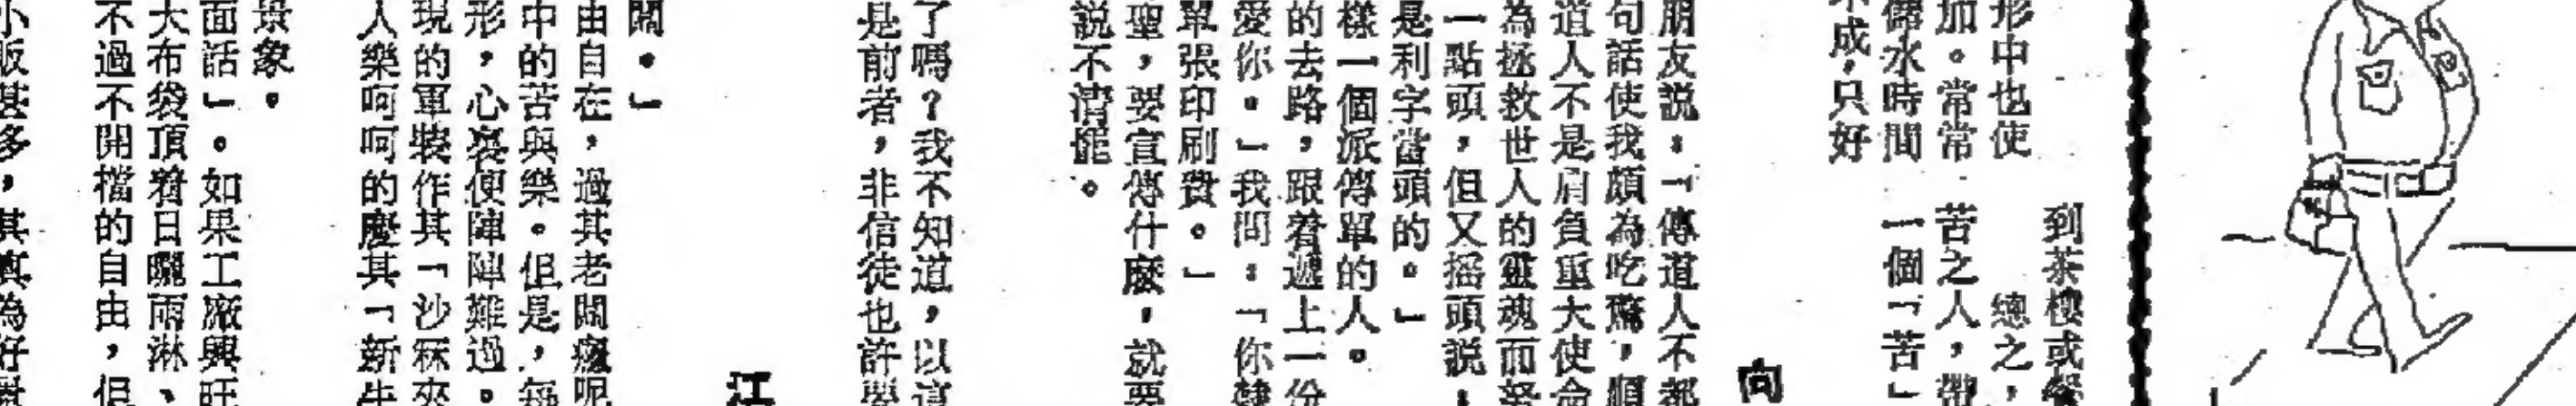 到茶樓或餐
總之，
形中也使
加。常常
苦之人，帶
儲水時間
一個「苦」
不成，只好
向
朋友説：「傳道人不都
句話使我頗為吃驚，順
道人不是肩負重大使命
為拯救世人的靈魂而努
一點頭，但又摇頭説：
是利字當頭的。」
樣一個派傳單的人。
的去路，跟着遞上一份
愛你。」我問：「你隸
單張印刷費。」
聖，要宣傳什麽，就要
説不清罷。
了嗎？我不知道，以這
是前者，非信徒也許要
江
闊。」
由自在，過其老闆癮呢
中的苦與樂。但是，每
形，心裏便陣陣難過。
現的軍裝作其「沙冧來
人樂呵呵的慶其「新年
景象。
面話」。如果工廠興旺
大布袋頂着日曬雨淋、
不過不開檔的自由，但
小販甚多，其真為好